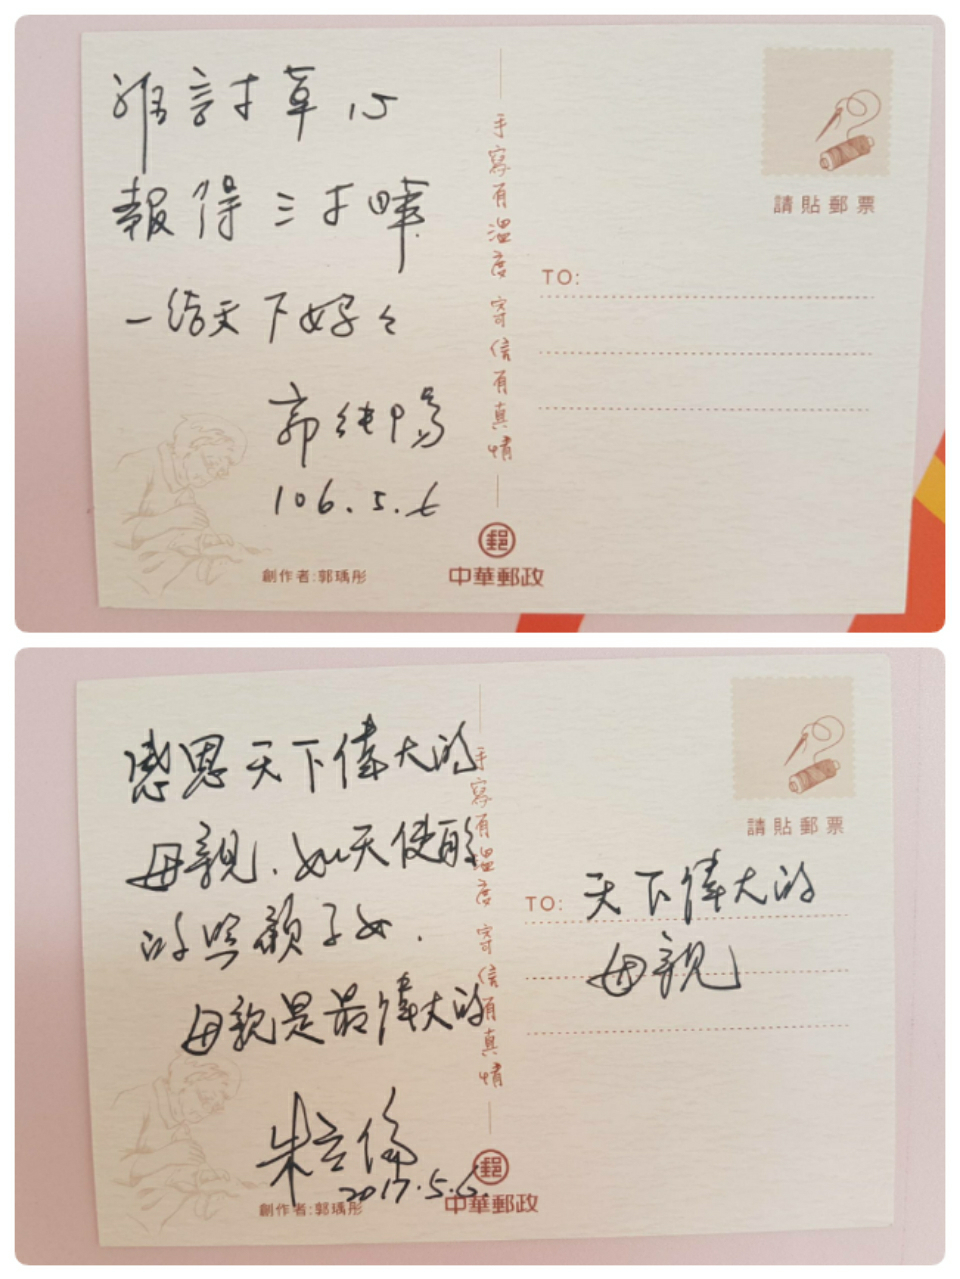 誰言寸草心
報得三寸暉
一給天下媽々
郭純陽
106.5.6
創作者:郭瑀彤
手寫有溫度 寄信有真情
中華郵政
請貼郵票
TO:
感恩天下偉大的
母親.如天使般
的照顧子女.
母親是最偉大的
朱立倫
2017.5.6.
創作者:郭瑀彤
手寫有溫度 寄信有真情
中華郵政
請貼郵票
TO: 天下偉大的
母親